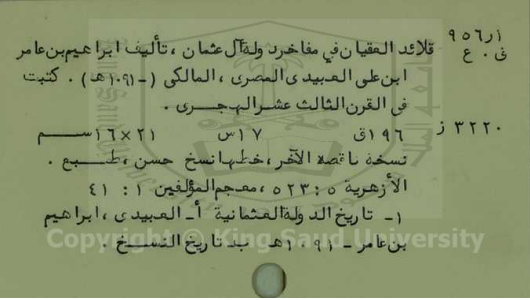 ٩٥٦ر١
ف . ع
قلائد العقيان في مفاخر دولة آل عثمان ، تأليف ابراهيم بن عامر
ابن علي العبيدي المصري ، المالكي ( - ١٠٩١هـ ) . كتبت
في القرن الثالث عشر الهجري .
٣٢٢٠ ز ١٩٦ق ١٧س ٢١×١٦ســم
نسخة ناقصة الآخر ، خطها نسخ حسن ، طبع .
الأزهرية ٥ : ٥٢٣ ، معجم المؤلفين ١ : ٤١
١- تاريخ الدولة العثمانية أ- العبيدي ، ابراهيم
بن عامر - ١٠٩١هـ ب- تاريخ النسخ .
Copyright © King Saud University